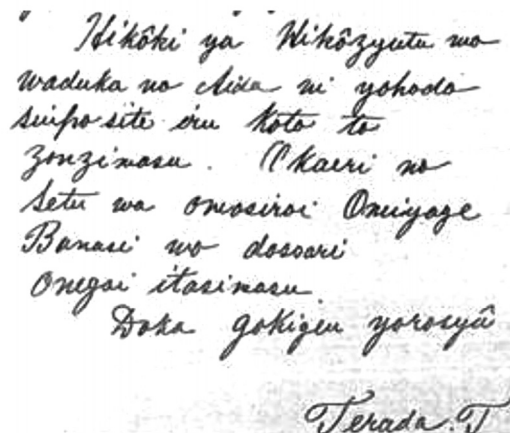 Hikôki ya Hikôzyutu wo
waduka no Aida ni yohodo
sinpo site iru koto to
zonzimasu. Okaeri no
Setu wa omosiroi Omiyage
Banasi wo dossari
onegai itasimasu
Doka gokigen yorosyû
Terada. T